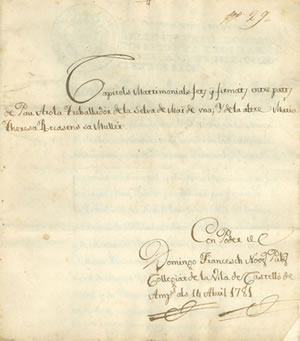 nº 29.
Capitols Matrimonials fets y firmats entre parts
de Pau Arola Treballador de la Selva de Mar de una, Y de la altre Maria
Theresa Recasens sa Muller
Con Poder el C
Domingo Francesch Notʳ Pubᶜʰ
Collegiat de la Vila de Castello de
Ampˢ als 14 Abril 1781